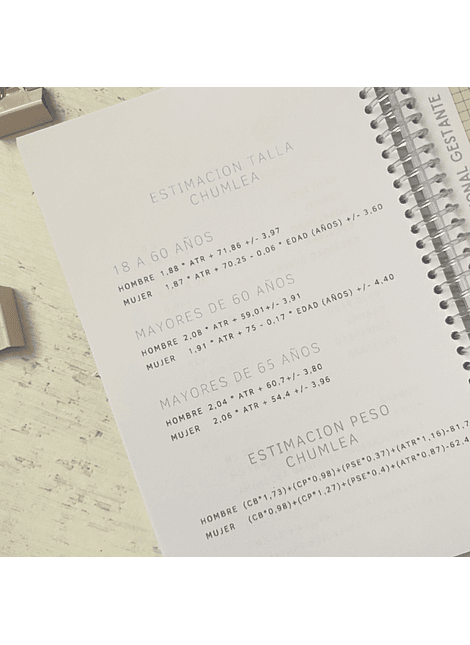 ESTIMACION TALLA
CHUMLEA
18 A 60 AÑOS
HOMBRE 1,88 * ATR + 71,86 +/- 3,97
MUJER 1,87 * ATR + 70,25 - 0,06 * EDAD (AÑOS) +/- 3,60
MAYORES DE 60 AÑOS
HOMBRE 2,08 * ATR + 59,01+/- 3,91
MUJER 1,91 * ATR + 75 - 0,17 * EDAD (AÑOS) +/- 4,40
MAYORES DE 65 AÑOS
HOMBRE 2,04 * ATR + 60,7+/- 3,80
MUJER 2,06 * ATR + 54,4 +/- 3,96
ESTIMACION PESO
CHUMLEA
HOMBRE (CB*1,73)+(CP*0,98)+(PSE*0,37)+(ATR*1,16)-81,7
MUJER (CB*0,98)+(CP*1,27)+(PSE*0,4)+(ATR*0,87)-62,4
NAL GESTANTE